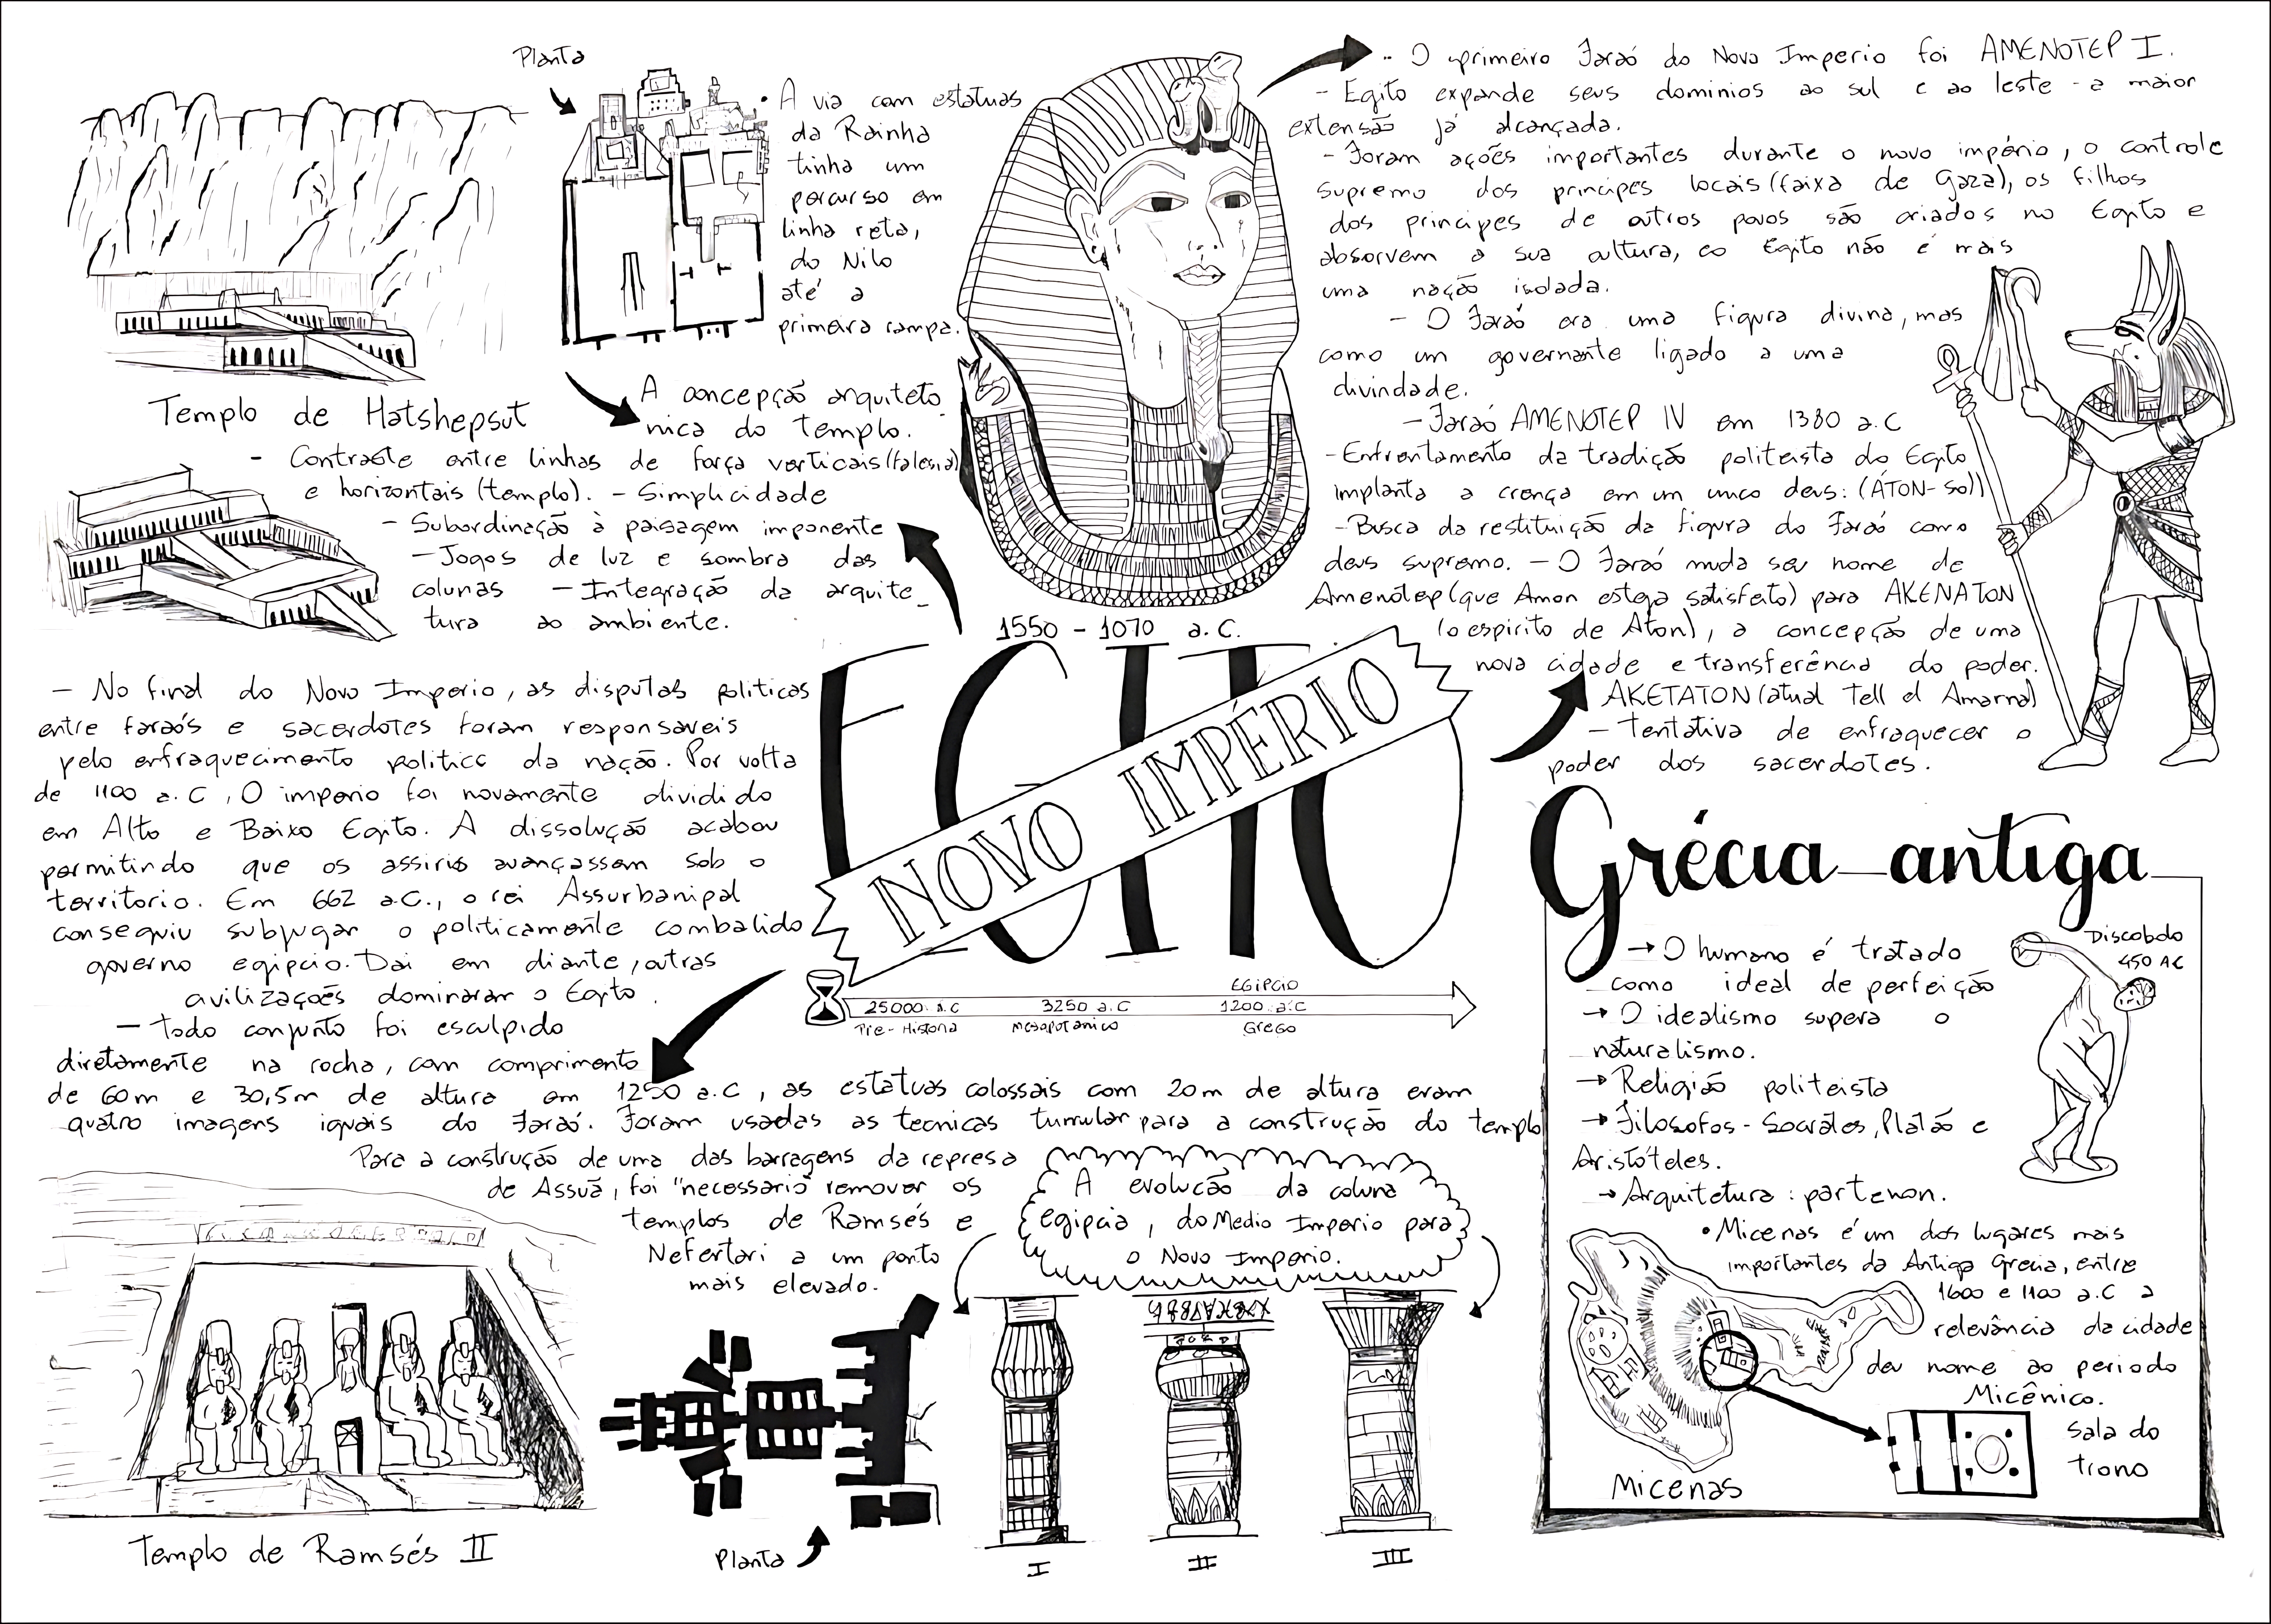 Planta
• A via com estatuas
da Rainha
tinha um
percurso em
linha reta,
do Nilo
até a
primeira rampa.
Templo de Hatshepsut
A concepção arquitetô
nica do templo.
- Contraste entre linhas de força verticais (falesia)
e horizontais (templo). - Simplicidade
- Subordinação à paisagem imponente
- Jogos de luz e sombra das
colunas - Integração da arquite_
tura ao ambiente.
- O primeiro Faraó do Novo Imperio foi AMENOTEP I.
- Egito expande seus dominios ao sul e ao leste - a maior
extensão já alcançada.
- Foram ações importantes durante o novo império, o controle
supremo dos principes locais (faixa de Gaza), os filhos
dos principes de outros povos são criados no Egito e
absorvem a sua cultura, eo Egito não é mais
uma nação isolada.
- O Faraó era uma figura divina, mas
como um governante ligado a uma
divindade.
- Faraó AMENOTEP IV em 1380 a.C
- Enfrentamento da tradição politeista do Egito
implanta a crença em um unico deus: (ÁTON-Sol)
- Busca da restituição da figura do Faraó como
deus supremo. - O Faraó muda seu nome de
Amenotep (que Amon esteja satisfeito) para AKENATON
(o espirito de Aton), a concepção de uma
nova cidade e transferência do poder.
AKETATON (atual Tell el Amarna)
- Tentativa de enfraquecer o
poder dos sacerdotes.
1550 - 1070 a.C.
EGITO
NOVO IMPÉRIO
- No final do Novo Imperio, as disputas politicas
entre faraós e sacerdotes foram responsaveis
pelo enfraquecimento politico da nação. Por volta
de 1100 a.C, O imperio foi novamente dividido
em Alto e Baixo Egito. A dissolução acabou
permitindo que os assirios avançassem sob o
territorio. Em 662 a.C., o rei Assurbanipal
conseguiu subjugar o politicamente combalido
governo egipcio. Dai em diante, outras
civilizações dominaram o Egito.
25000 a.C
3250 a.C
EGIPCIO
1200 a.C
Pré-Historia
Mesopotamico
Grego
- Todo conjunto foi esculpido
diretamente na rocha, com comprimento
de 60m e 30,5m de altura em 1250 a.C, as estatuas colossais com 20m de altura eram
quatro imagens iguais do Faraó. Foram usadas as tecnicas tumular para a construção do templo
Para a construção de uma das barragens da represa
de Assuã, foi "necessario" remover os
templos de Ramsés e
Nefertari a um ponto
mais elevado.
Templo de Ramsés II
Planta
A evolucão da coluna
egipcia, do Medio Imperio para
o Novo Imperio.
I
II
III
Grécia antiga
→ O humano é tratado
como ideal de perfeição
→ O idealismo supera o
naturalismo.
→ Religião politeista
→ Filosofos - Socrátes, Platão e
Aristóteles.
→ Arquitetura: partenon.
Discobolo
450 AC
• Micenas é um dos lugares mais
importantes da Antiga Grecia, entre
1600 e 1100 a.C a
relevância da cidade
deu nome ao periodo
Micênico.
Sala do
trono
Micenas